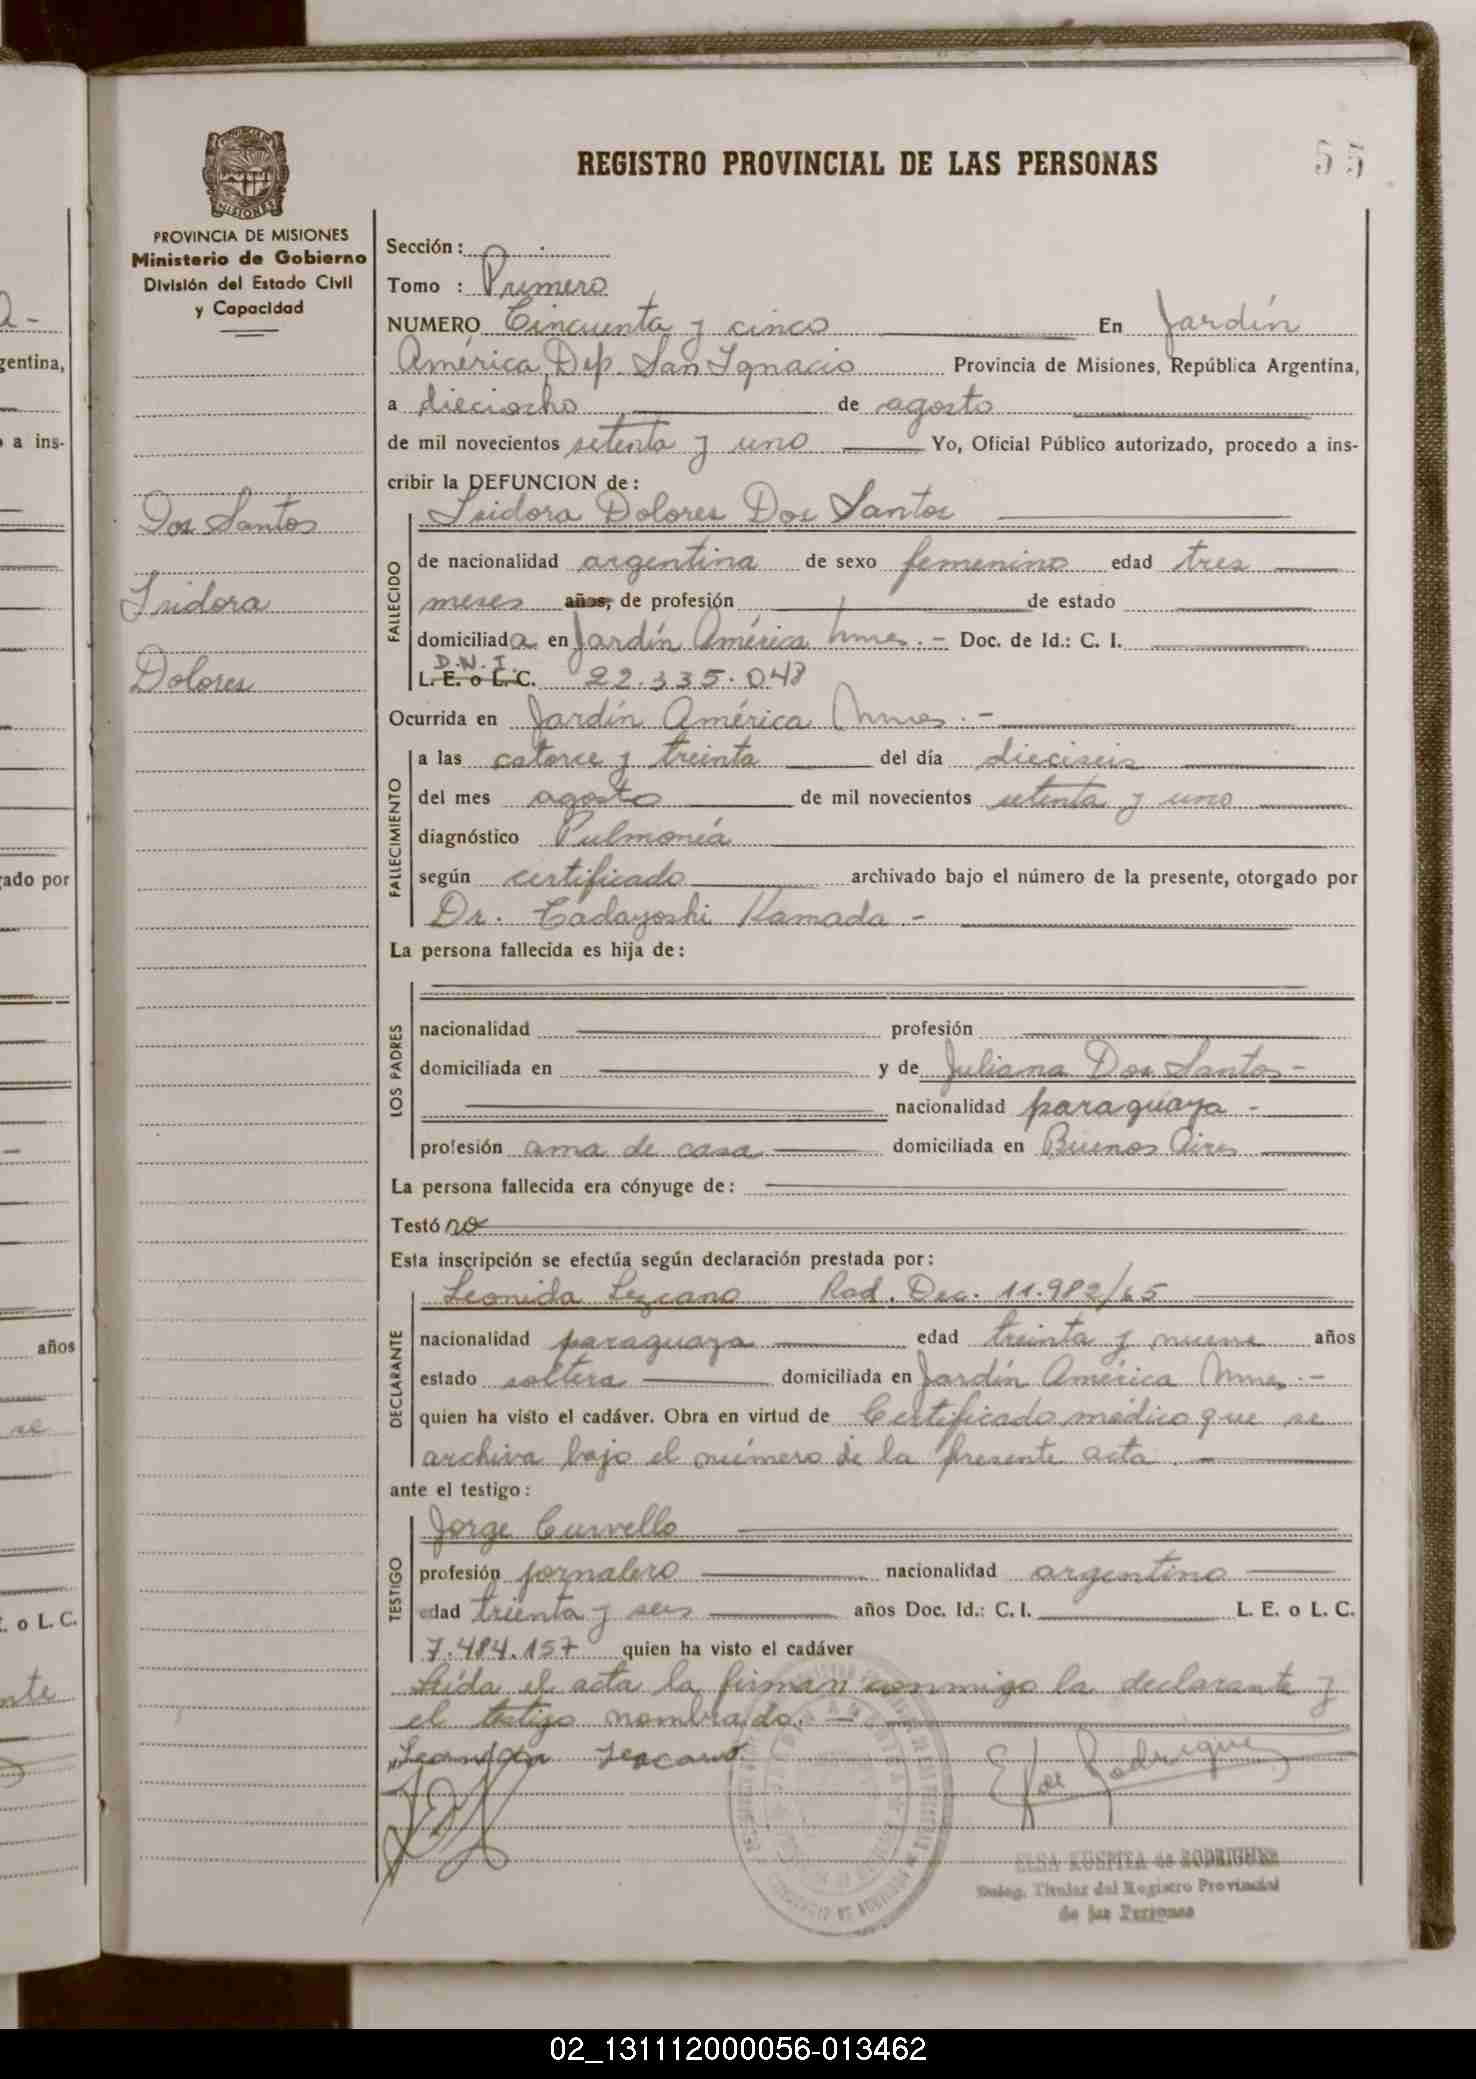 55
REGISTRO PROVINCIAL DE LAS PERSONAS
MISIONES
PROVINCIA DE MISIONES
Ministerio de Gobierno
División del Estado Civil
y Capacidad
Dos Santos
Isidora
Dolores
Sección :
Tomo : Primero
NUMERO Cincuenta y cinco En Jardín
América Dep. San Ignacio Provincia de Misiones, República Argentina,
a dieciocho de agosto
de mil novecientos setenta y uno Yo, Oficial Público autorizado, procedo a ins-
cribir la DEFUNCION de :
Isidora Dolores Dos Santos
FALLECIDO
de nacionalidad argentina de sexo femenino edad tres
meses años, de profesión de estado
domiciliada en Jardín América Mnes. - Doc. de Id.: C. I.
D.N.I.
L. E. o L. C. 22.335.048
Ocurrida en Jardín América Mnes. -
FALLECIMIENTO
a las catorce y treinta del día dieciseis
del mes agosto de mil novecientos setenta y uno
diagnóstico Pulmonía
según certificado archivado bajo el número de la presente, otorgado por
Dr. Tadayoshi Kamada -
La persona fallecida es hija de :
LOS PADRES
nacionalidad profesión
domiciliada en y de Juliana Dos Santos -
nacionalidad paraguaya -
profesión ama de casa domiciliada en Buenos Aires
La persona fallecida era cónyuge de :
Testó no
Esta inscripción se efectúa según declaración prestada por :
Leonida Lezcano Rad. Dec. 11.982/65
DECLARANTE
nacionalidad paraguaya edad treinta y nueve años
estado soltera domiciliada en Jardín América Mnes. -
quien ha visto el cadáver. Obra en virtud de Certificado médico que se
archiva bajo el número de la presente acta. -
ante el testigo :
Jorge Curvello
TESTIGO
profesión jornalero nacionalidad argentino
edad trienta y seis años Doc. Id.: C. I. L. E. o L. C.
7.484.157 quien ha visto el cadáver
Leída el acta la firman conmigo la declarante y
el testigo nombrado. -
Leonida Lezcano
E K de Rodriguez
ELSA KUSPITA de RODRIGUEZ
Deleg. Titular del Registro Provincial
de las Personas
gentina,
a ins-
gado por
años
se
E. o L. C.
nte
02_131112000056-013462